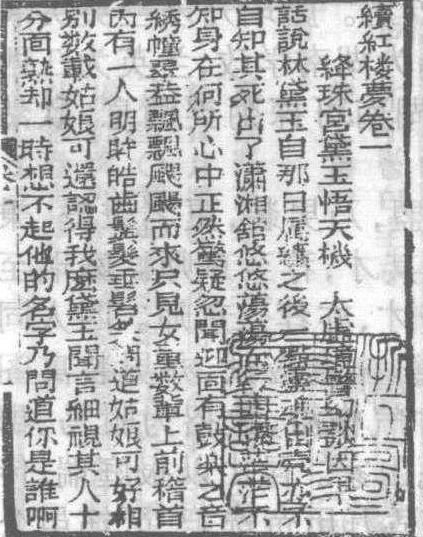 續紅樓夢卷一
絳珠宮黛玉悟天機 太虛
話說林黛玉自那日屬纊之後一
自知其死出了瀟湘舘悠悠蕩蕩
知身在何所心中正然驚疑忽聞迎面有鼓樂之音
綉幢翠盖飄飄颺颺而來只見女童數輩上前稽首
內有一人明眸皓齒鬒髮垂髫笑道姑娘可好相
別数載姑娘可還認得我麽黛玉聞言細視其人十
分面熟却一時想不起他的名字乃問道你是誰啊